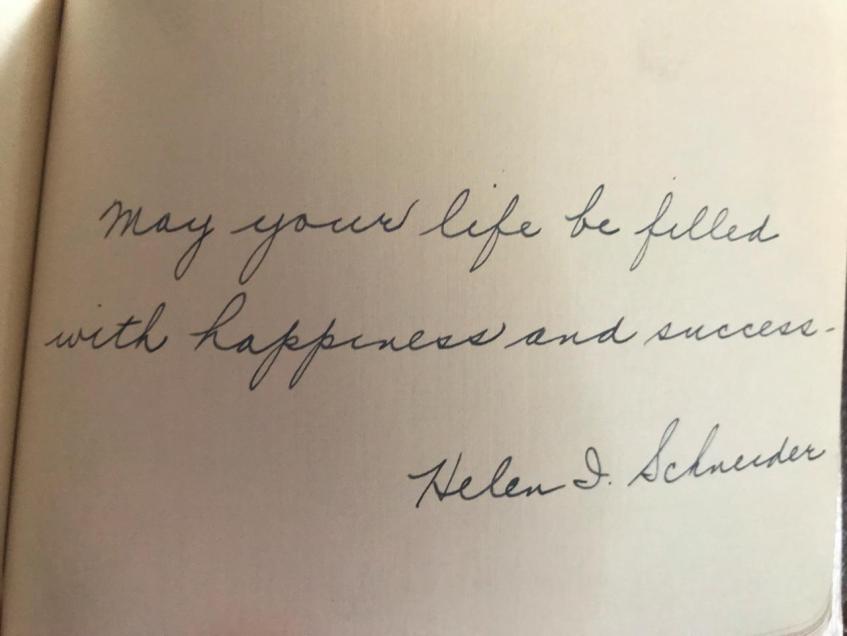 May your life be filled
with happiness and success.
Helen I. Schneider